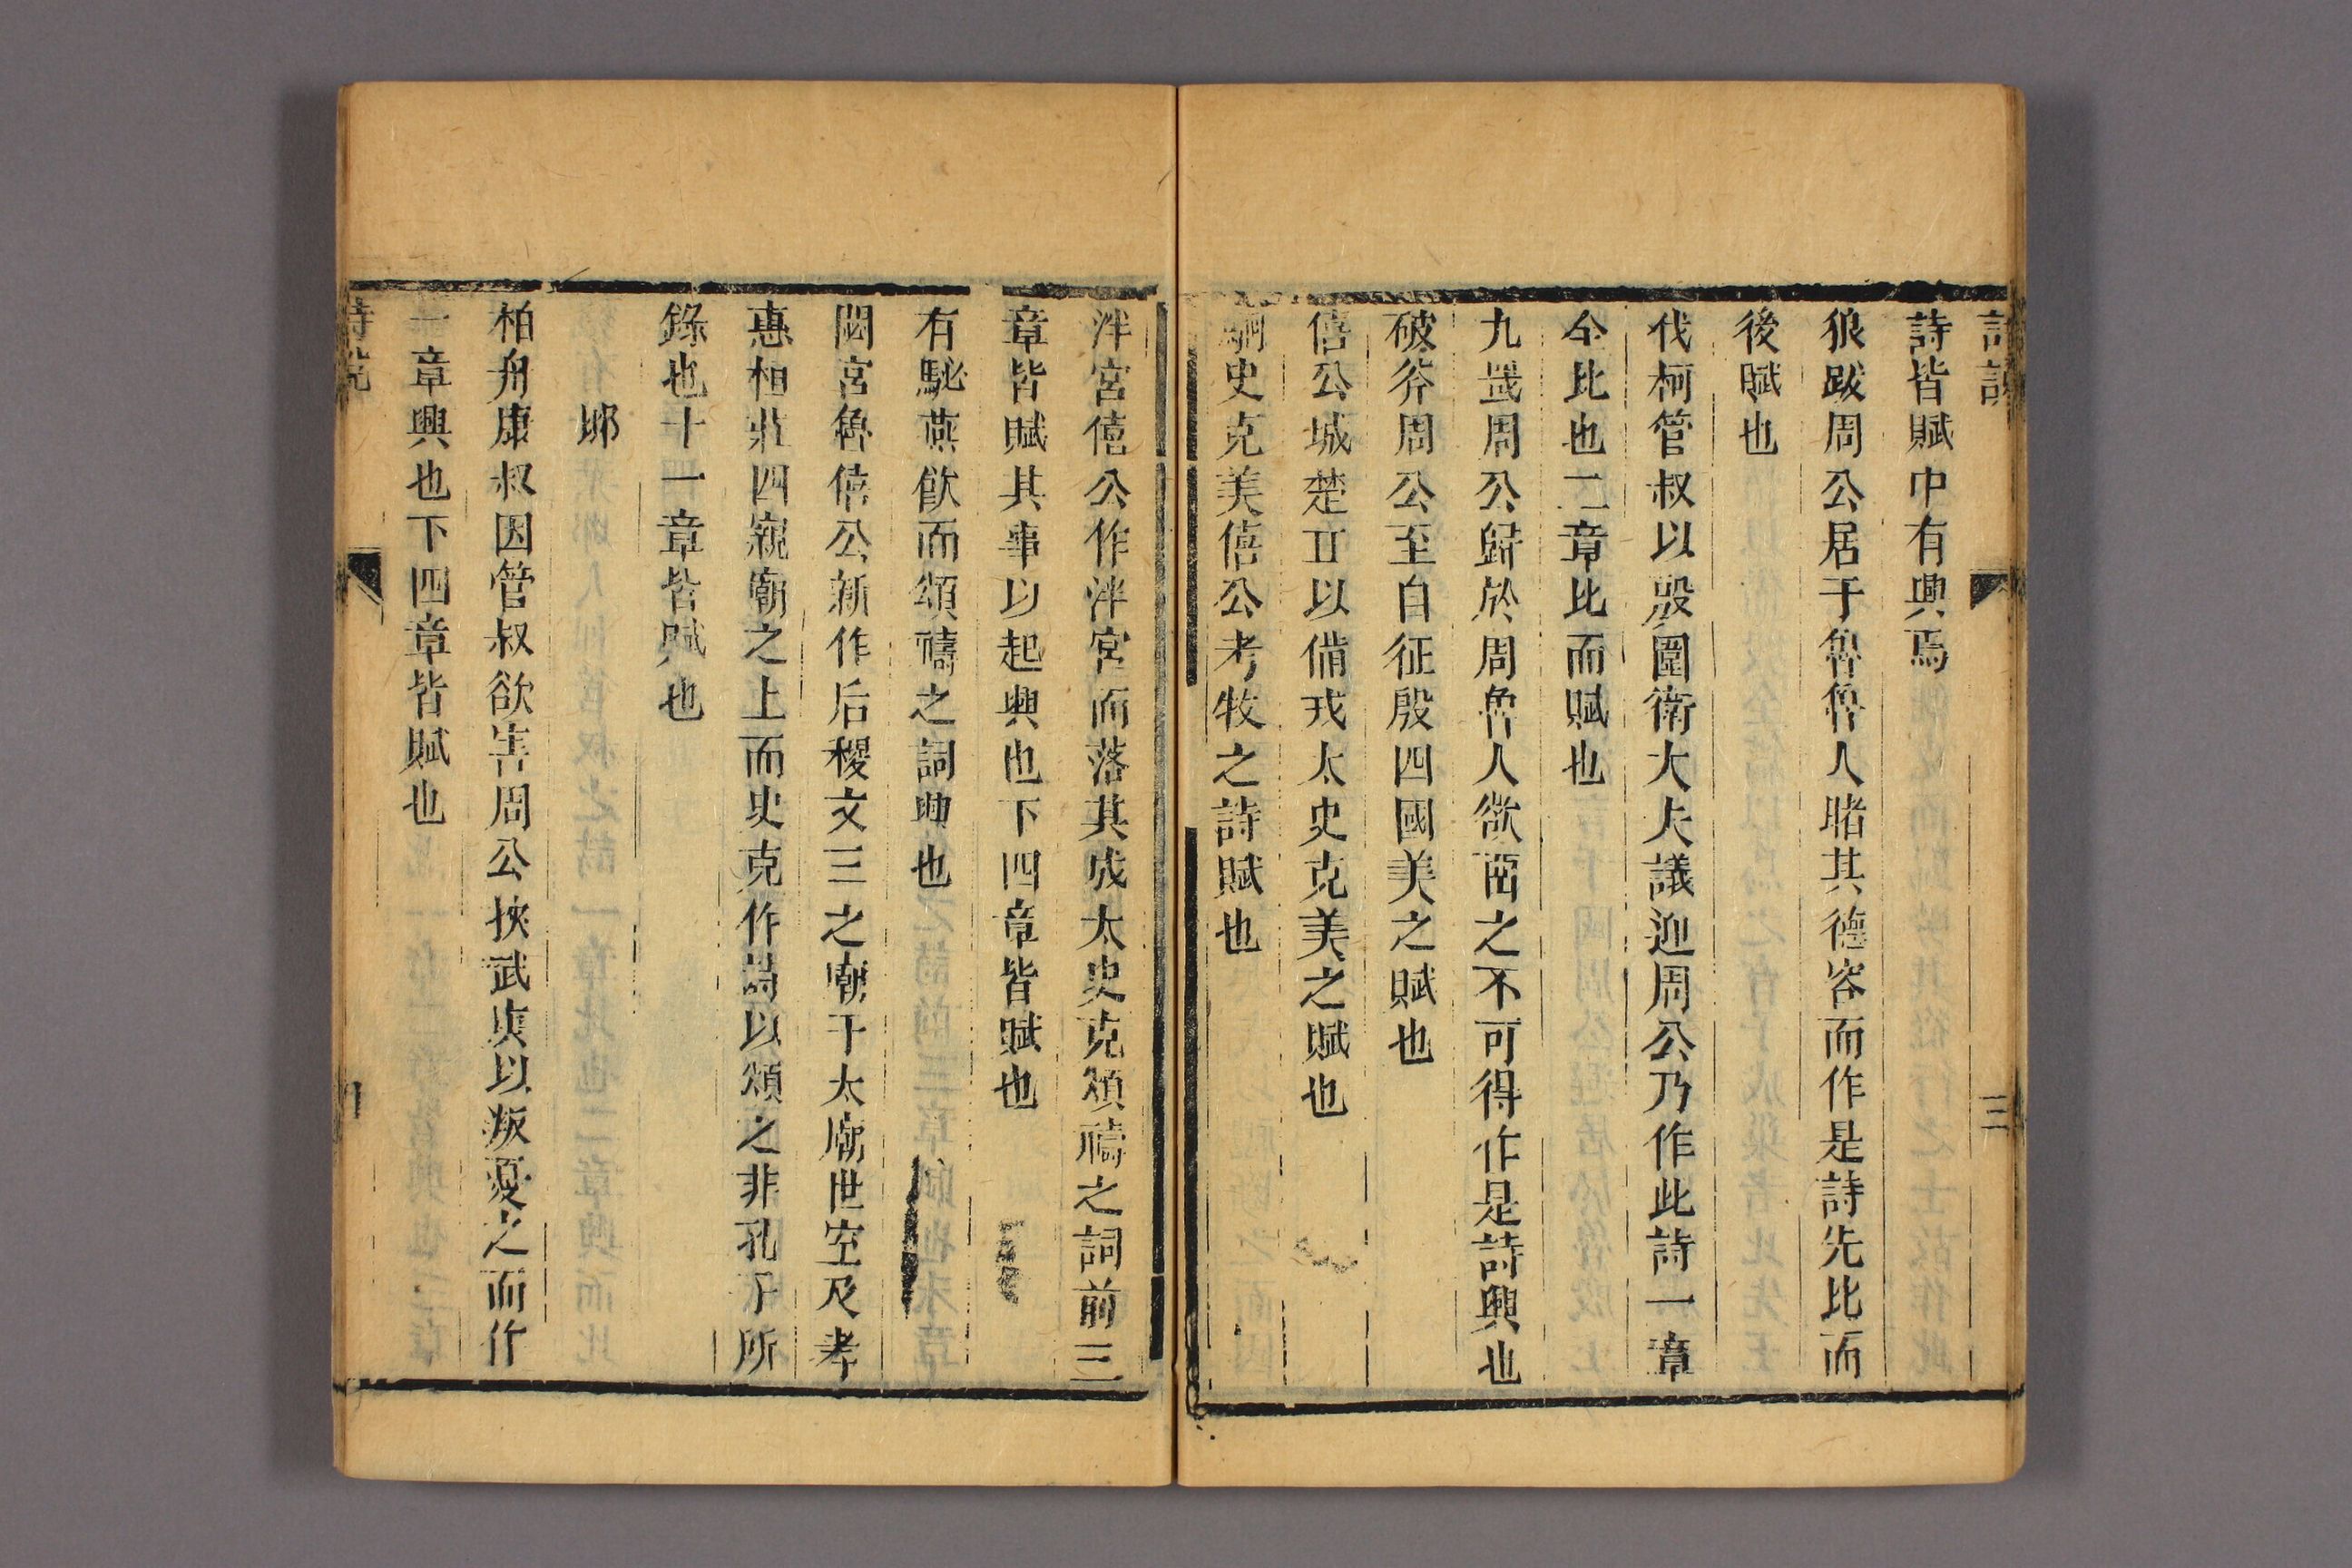 詩說
三
詩皆賦中有興焉
狼跋周公居于魯魯人睹其德容而作是詩先比而
後賦也
伐柯管叔以殷圍衛大夫議迎周公乃作此詩一章
全比也二章比而賦也
九罭周公歸於周魯人欲畱之不可得作是詩興也
破斧周公至自征殷四國美之賦也
僖公城楚丘以備戎太史克美之賦也
駉史克美僖公考牧之詩賦也
泮宮僖公作泮宮而落其成太史克頌禱之詞前三
章皆賦其事以起興也下四章皆賦也
有駜燕飲而頌禱之詞興也
閟宮魯僖公新作后稷文王之廟于太廟世室及孝
惠桓莊四親廟之上而史克作詩以頌之非孔子所
錄也十一章皆賦也
邶
柏舟康叔因管叔欲害周公挾武庚以叛憂之而作
一章興也下四章皆賦也
詩說